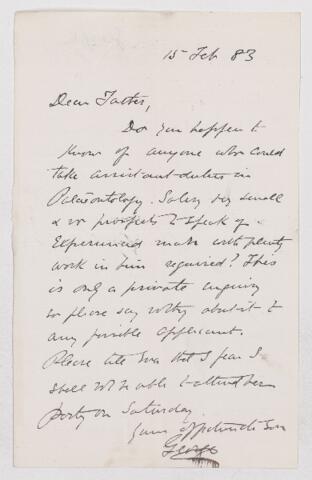 15 Feb 83
Dear Father,
Do you happen to
know of anyone who could
take assistant-duties in
Palaeontology. Salary very small
& no prospects to speak of.
Experienced man with plenty
work in him required? This
is only a private enquiry
so please say nothing about it to
any possible applicant.
Please tell that I fear I
shall not be able to attend her
party on Saturday.
Your affectionate Son
George